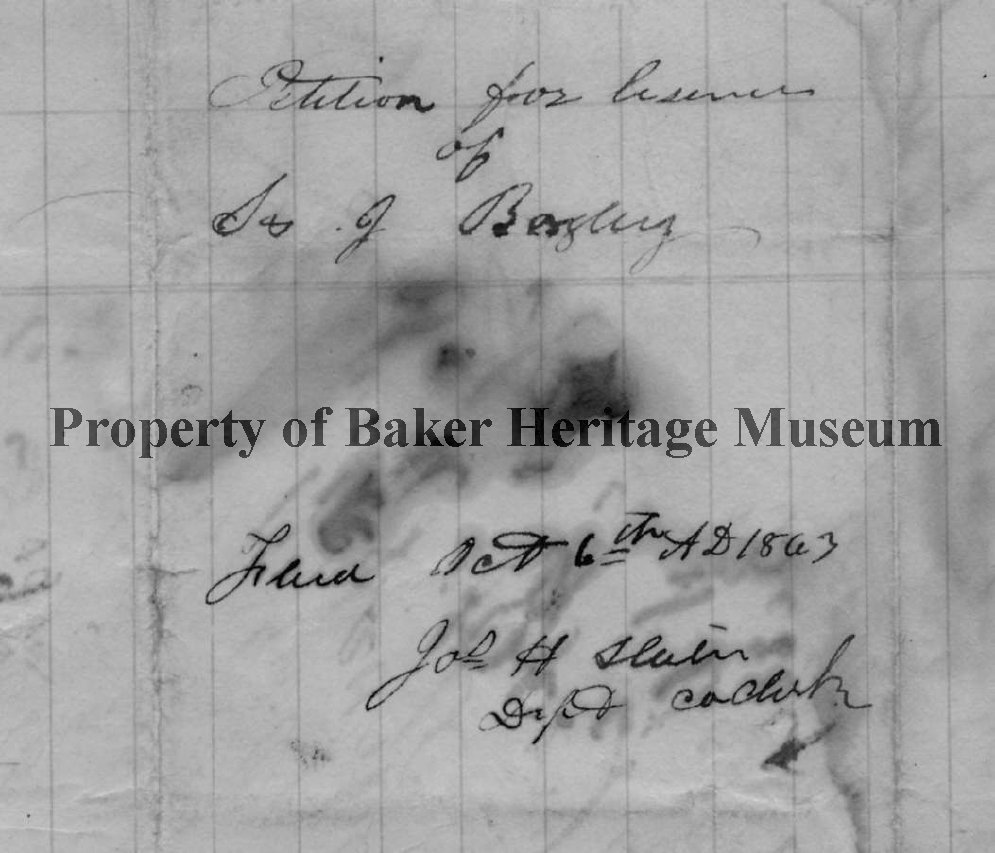 Petition foor lisence
of
J. Bagley
Property of Baker Heritage Museum
Filed Oct 6th AD 1863
Jos H Slater
Dept co Clerk